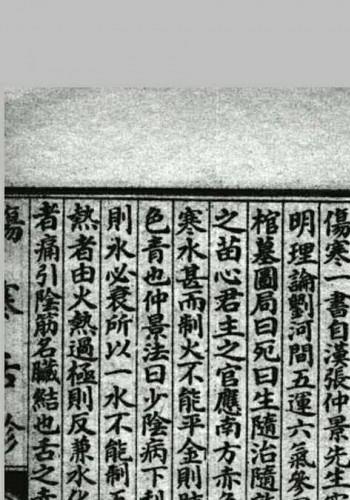 傷寒一書自漢張仲景先生
明理論劉河間五運六氣
棺墓圖局曰死曰生隨治隨
之苗心君主之官應南方赤
寒水甚而制火不能平金則
色青也仲景法曰少陰病下利
則水必衰所以一水不能制五
熱者由火熱過極則反兼水化
者痛引陰筋名臟結也舌之
傷寒舌診